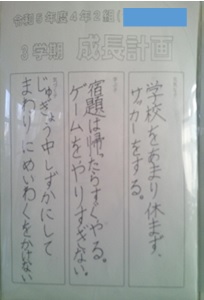 令和5年度4年2組(
3学期 成長計画
学校をあまり休まず、
サッカーをする。
宿題は帰ったらすぐやる。
ゲームをやりすぎない。
じゅぎょう中しずかにして
まわりにめいわくをかけない